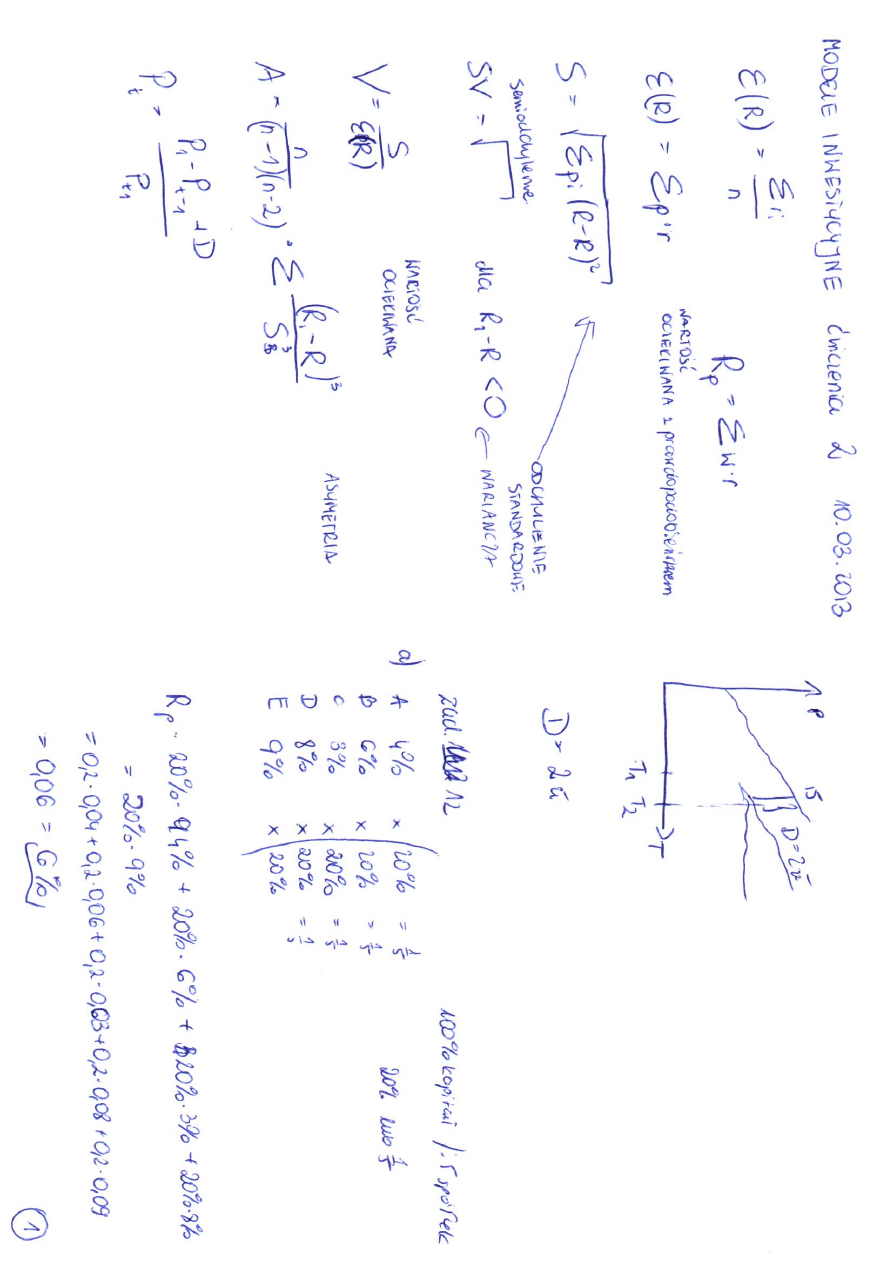 MODELE INWESTYCYJNE ćwiczenia 2 10.03.2013
E(R) = Σri / n
Rp = Σ w·r
E(R) = Σp·r WARTOŚĆ OCZEKIWANA z prawdopodobieństwem
S = √Σpi (R-R)² ODCHYLENIE STANDARDOWE
semiodchylenie
SV = √ dla R1-R < 0 ← WARIANCJA
V = S / E(R) WARTOŚĆ OCZEKIWANA
A = n / (n-1)(n-2) · Σ (Ri-R)³ / S³ ASYMETRIA
Pt = P1 - Pt-1 + D / Pt1
P
15
D=2zł
T1 T2 T
D = 2zł
zad. 12
100% kapitał /: 5 spółek
a) A 4% x 20% = 1/5
20% lub 1/5
B 6% x 20% = 1/5
C 3% x 20% = 1/5
D 8% x 20% = 1/5
E 9% x 20%
Rp = 20%·4% + 20%·6% + 20%·3% + 20%·8%
= 20%·9%
= 0,2·0,04+0,2·0,06+0,2·0,03+0,2·0,08+0,2·0,09
= 0,06 = 6%
1